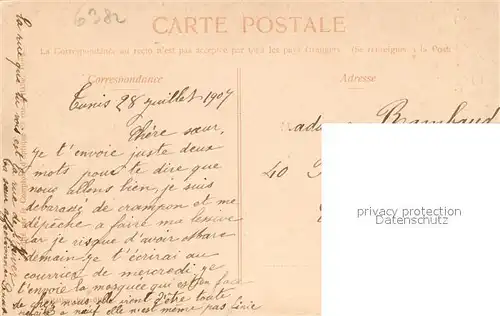 6382
CARTE POSTALE
La Correspondance au recto n'est pas acceptée par tous les pays étrangers (Se renseigner à la Poste
Correspondance
Adresse
Tunis 28 juillet 1907
Chère sœur,
je t'envoie juste deux
mots pour te dire que
nous allons bien, je suis
debarassé de crampon et me
dépêche a faire ma lessive
car je risque d'avoir
demain je t'écrirai au
courrier de mercredi je
t'envoie la mosquée qui est en face
de chez nous elle vient d'être toute
a neuf elle n'est même pas finie
la rue que tu vois est la rue de
Ta sœur affectionnée
Madame Brambaud
40
privacy protection
Datenschutz